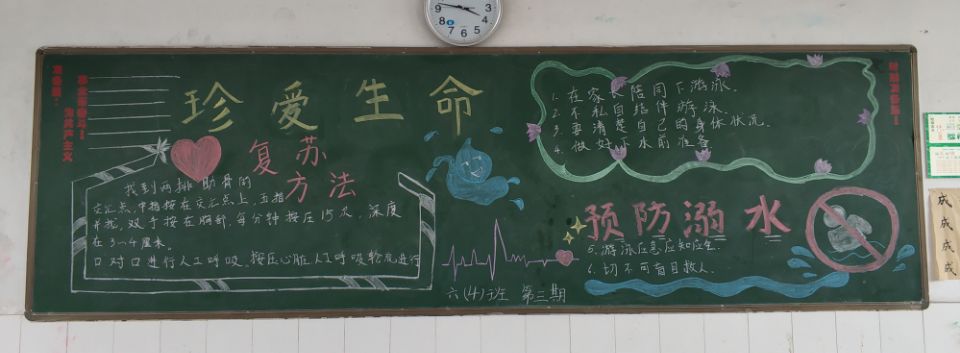 准备着：
为共产主义
事业而奋斗！
时刻准备着！
珍爱生命
复苏
方法
找到两排肋骨的
交汇点，中指按在交汇点上，五指
并拢，双手按在胸部，每分钟按压15次，深度
在3～4厘米。
口对口进行人工呼吸，按压心脏人工呼吸轮流进行
1. 在家长陪同下游泳．
2. 不私自结伴游泳
3. 要清楚自己的身体状况．
4. 做好下水前准备
预防溺水
5. 游泳应急应知应会．
6. 切不同盲目救人．
六(4)班 第三期
成
成
成
成
9
8
7
6
5
4
3